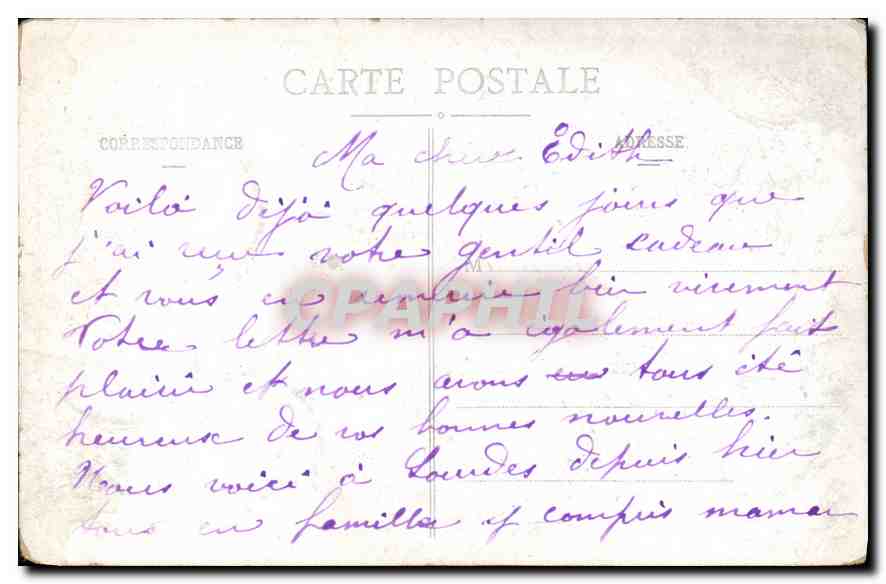 CARTE POSTALE
CORRESPONDANCE
ADRESSE
Ma chere Edith
Voilà déjà quelques jours que
j'ai reçu votre gentil cadeau
M
et vous en remercie bien vivement
CPAPHIL
Votre lettre m'a également fait
plaisir et nous avons tous été
heureux de vos bonnes nouvelles.
Nous voici à Lourdes depuis hier
tous en famille y compris maman